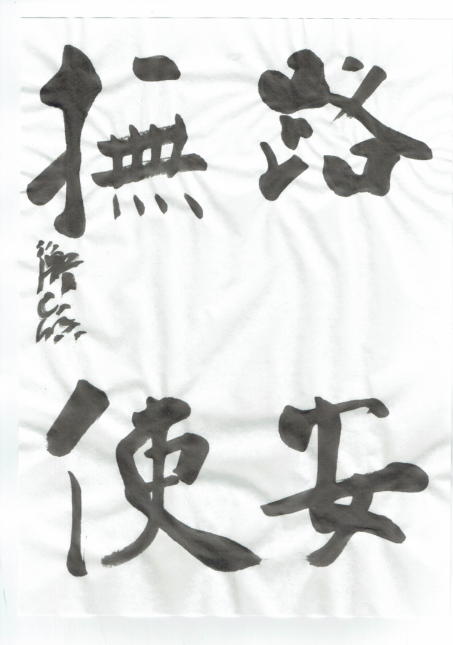 路安
撫使